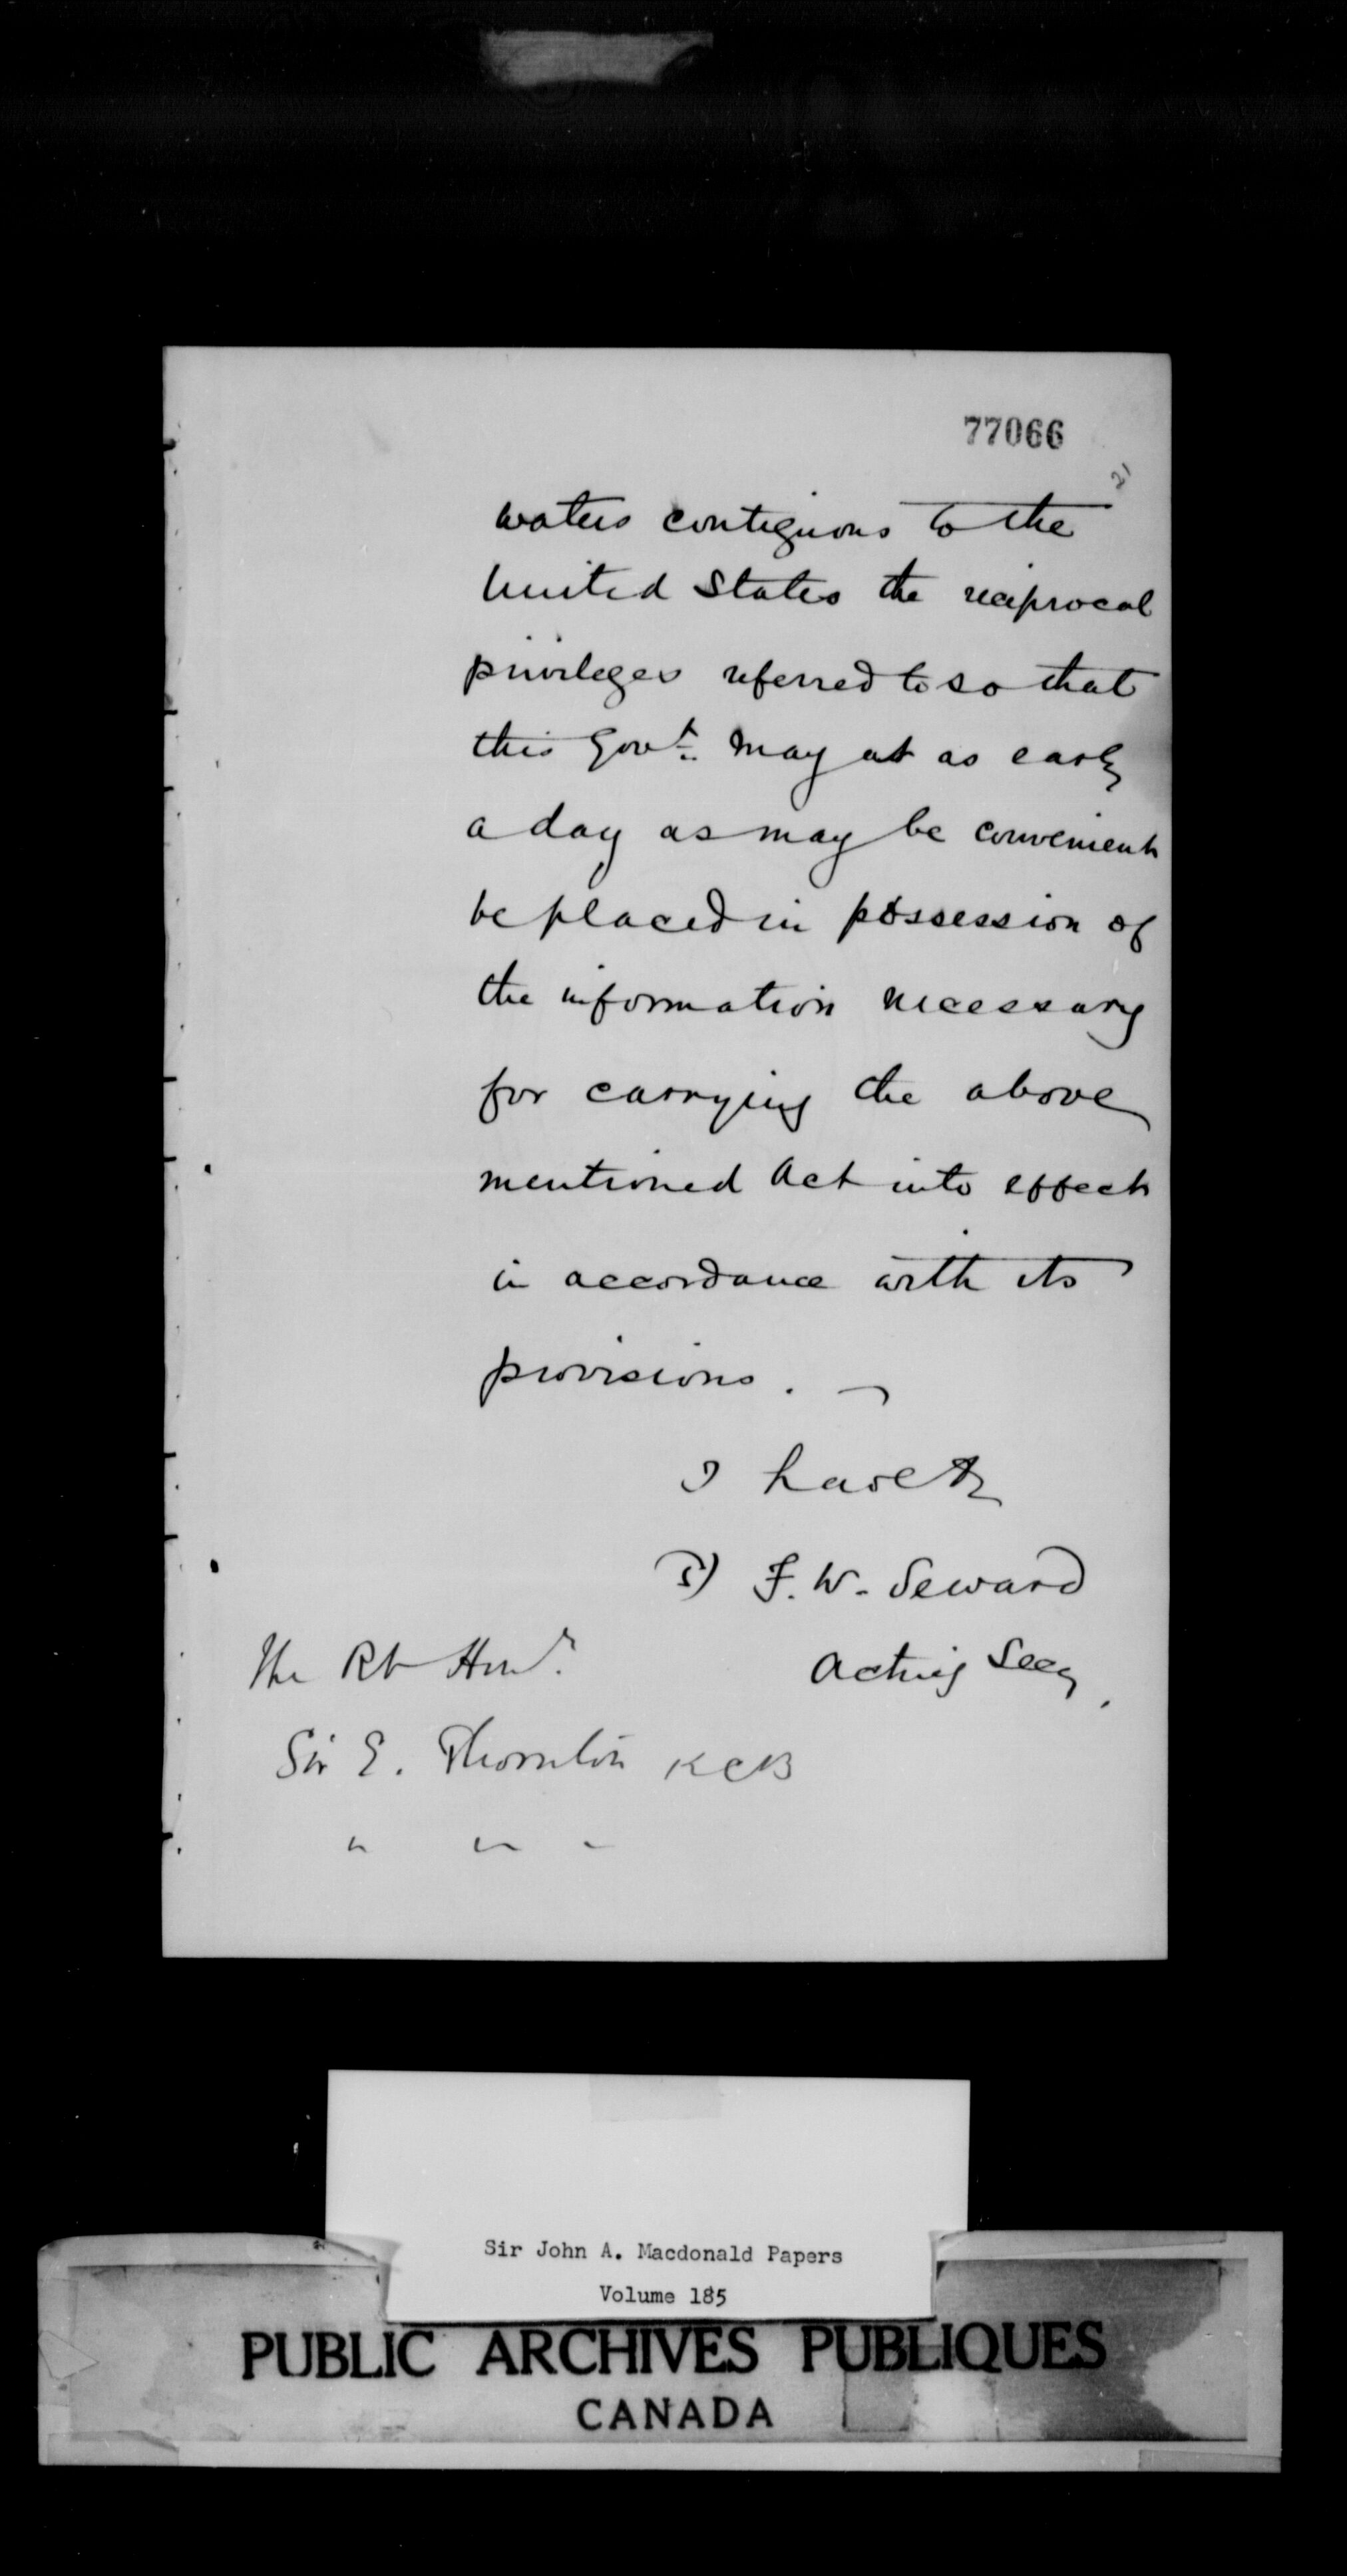 77066
21
waters contiguous to the
United States the reciprocal
privileges referred to so that
this Govt. may at as early
a day as may be convenient
be placed in possession of
the information necessary
for carrying the above
mentioned Act into effect
in accordance with its
provisions. —
I have &
(s) F. W. Seward
Acting Secy.
The Rt Honr.
Sir E. Thornton KCB
" " "
Sir John A. Macdonald Papers
Volume 185
PUBLIC ARCHIVES PUBLIQUES
CANADA